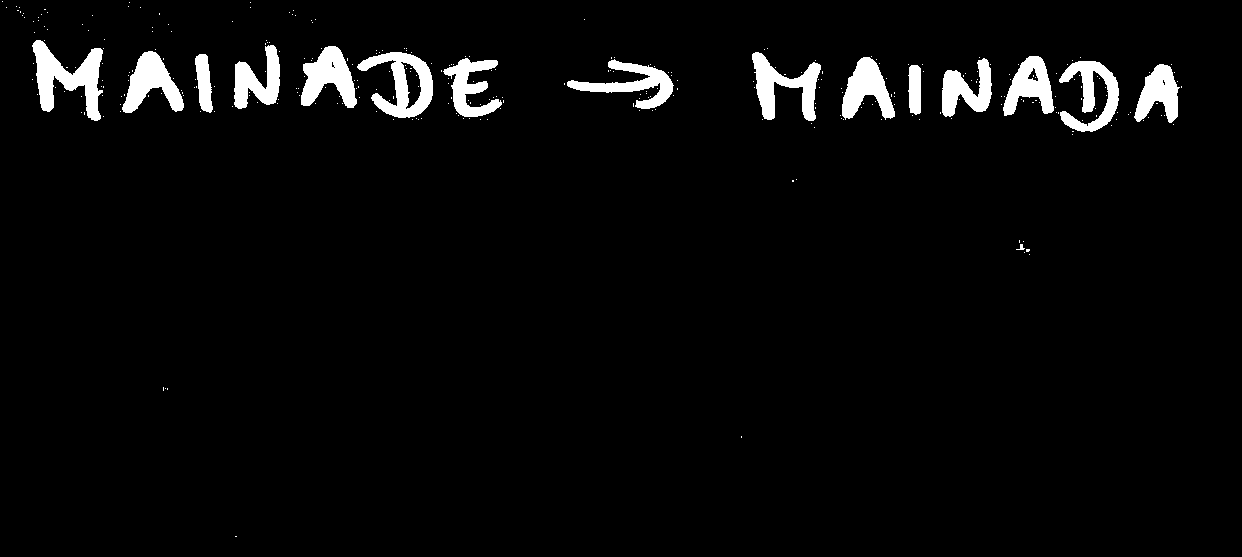 MAINADE → MAINADA